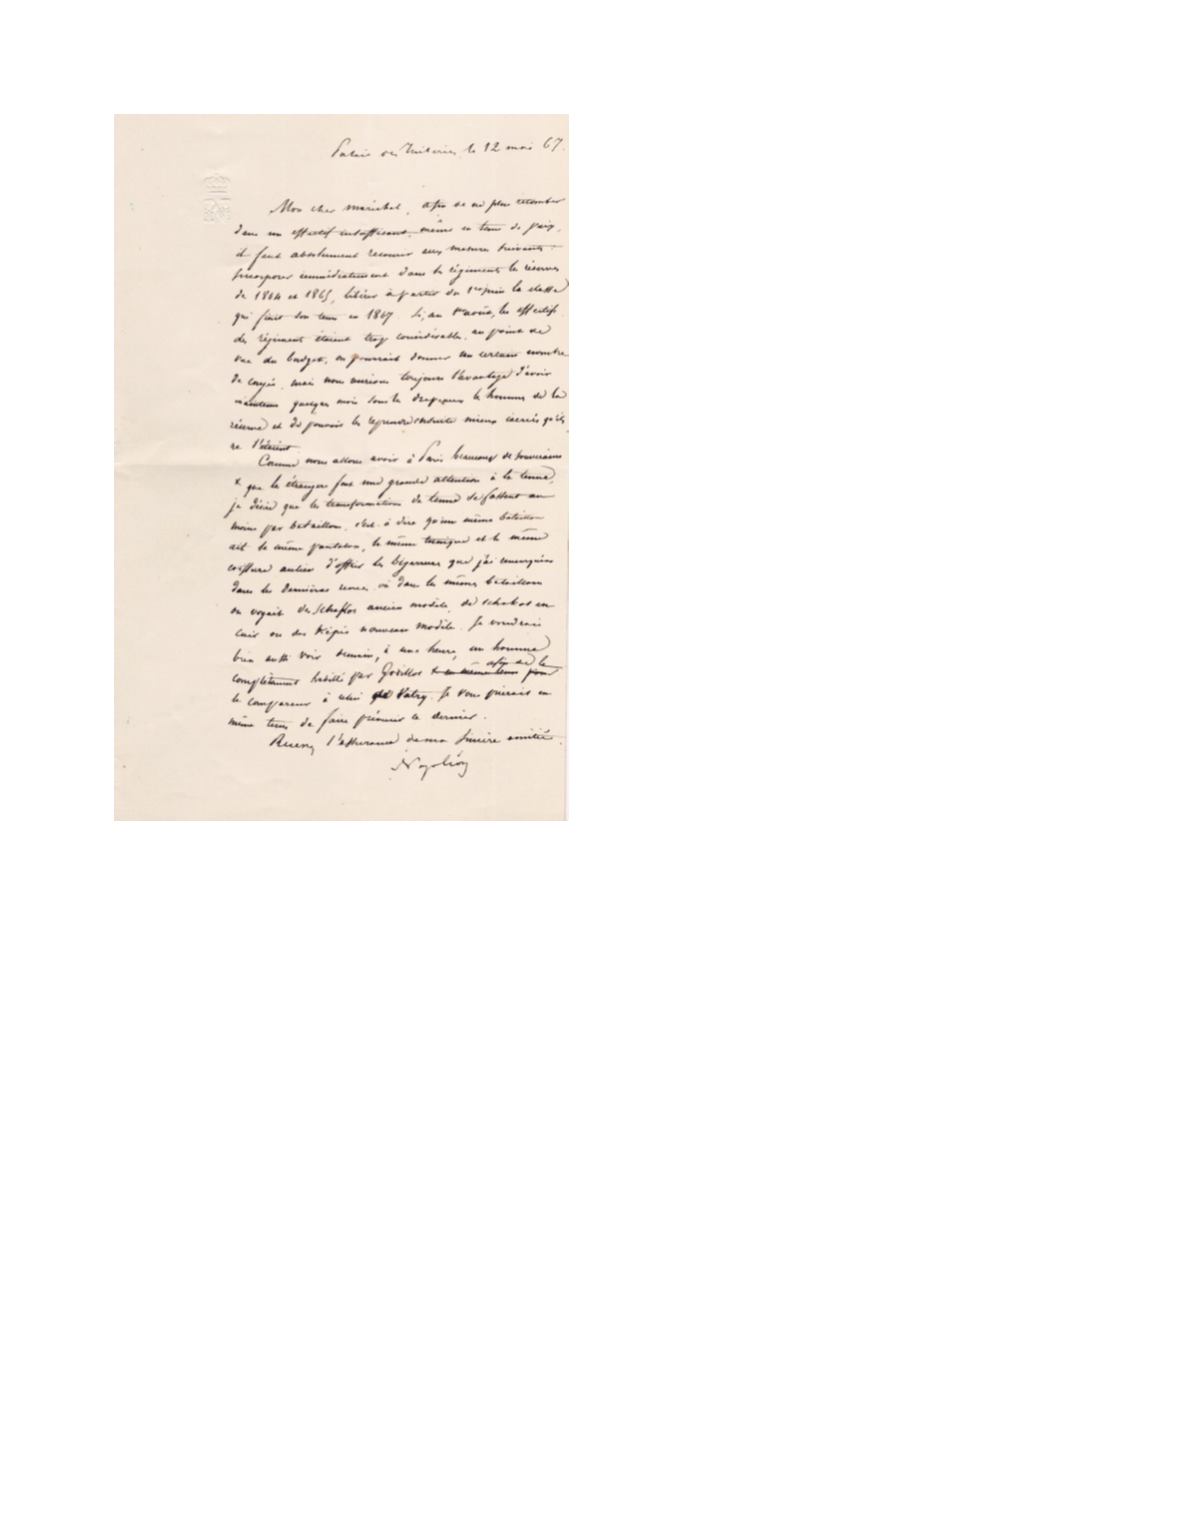 Palais des Tuileries, le 12 mai 67.
Mon cher maréchal, afin de ne plus retomber
dans un effectif insuffisant, même en tems de paix,
il faut absolument recourir aux mesures suivantes :
Incorporer immédiatement dans les régiments les réserves
de 1864 et 1865, libérer à partir du 1er juin la classe
qui finit son tems en 1867. Si, au mois, les effectifs
des régiment étaient trop considérables, au point de
vue du budget, on pourrait donner un certain nombre
de congés, mais nous aurions toujours l'avantage d'avoir
maintenu quelques mois sous les drapeaux les hommes de la
réserve et de pouvoir les reprendre ensuite mieux exercés qu'ils
ne l'étaient.
Comme nous allons avoir à Paris beaucoup de souverains
& que les étrangers font une grande attention à la tenue,
je désire que les transformations de tenue se fassent au
moins par bataillon, c'est à dire qu'un même bataillon
ait le même pantalon, la même tunique et la même
coiffure au lieu d'offrir les bigarrures que j'ai remarquées
dans les dernières revues où dans les mêmes bataillons
on voyait des schakos ancien modèle, des schakos en
cuir ou des Képis nouveau modèle. Je voudrais
bien aussi voir demain, à une heure, un homme
complètement habillé par Godillot & en même tems pour afin de le
le comparer à celui de Vatry. Je vous prierais en
même tems de faire prévenir ce dernier.
Recevez l'assurance de ma sincère amitié.
Napoléon